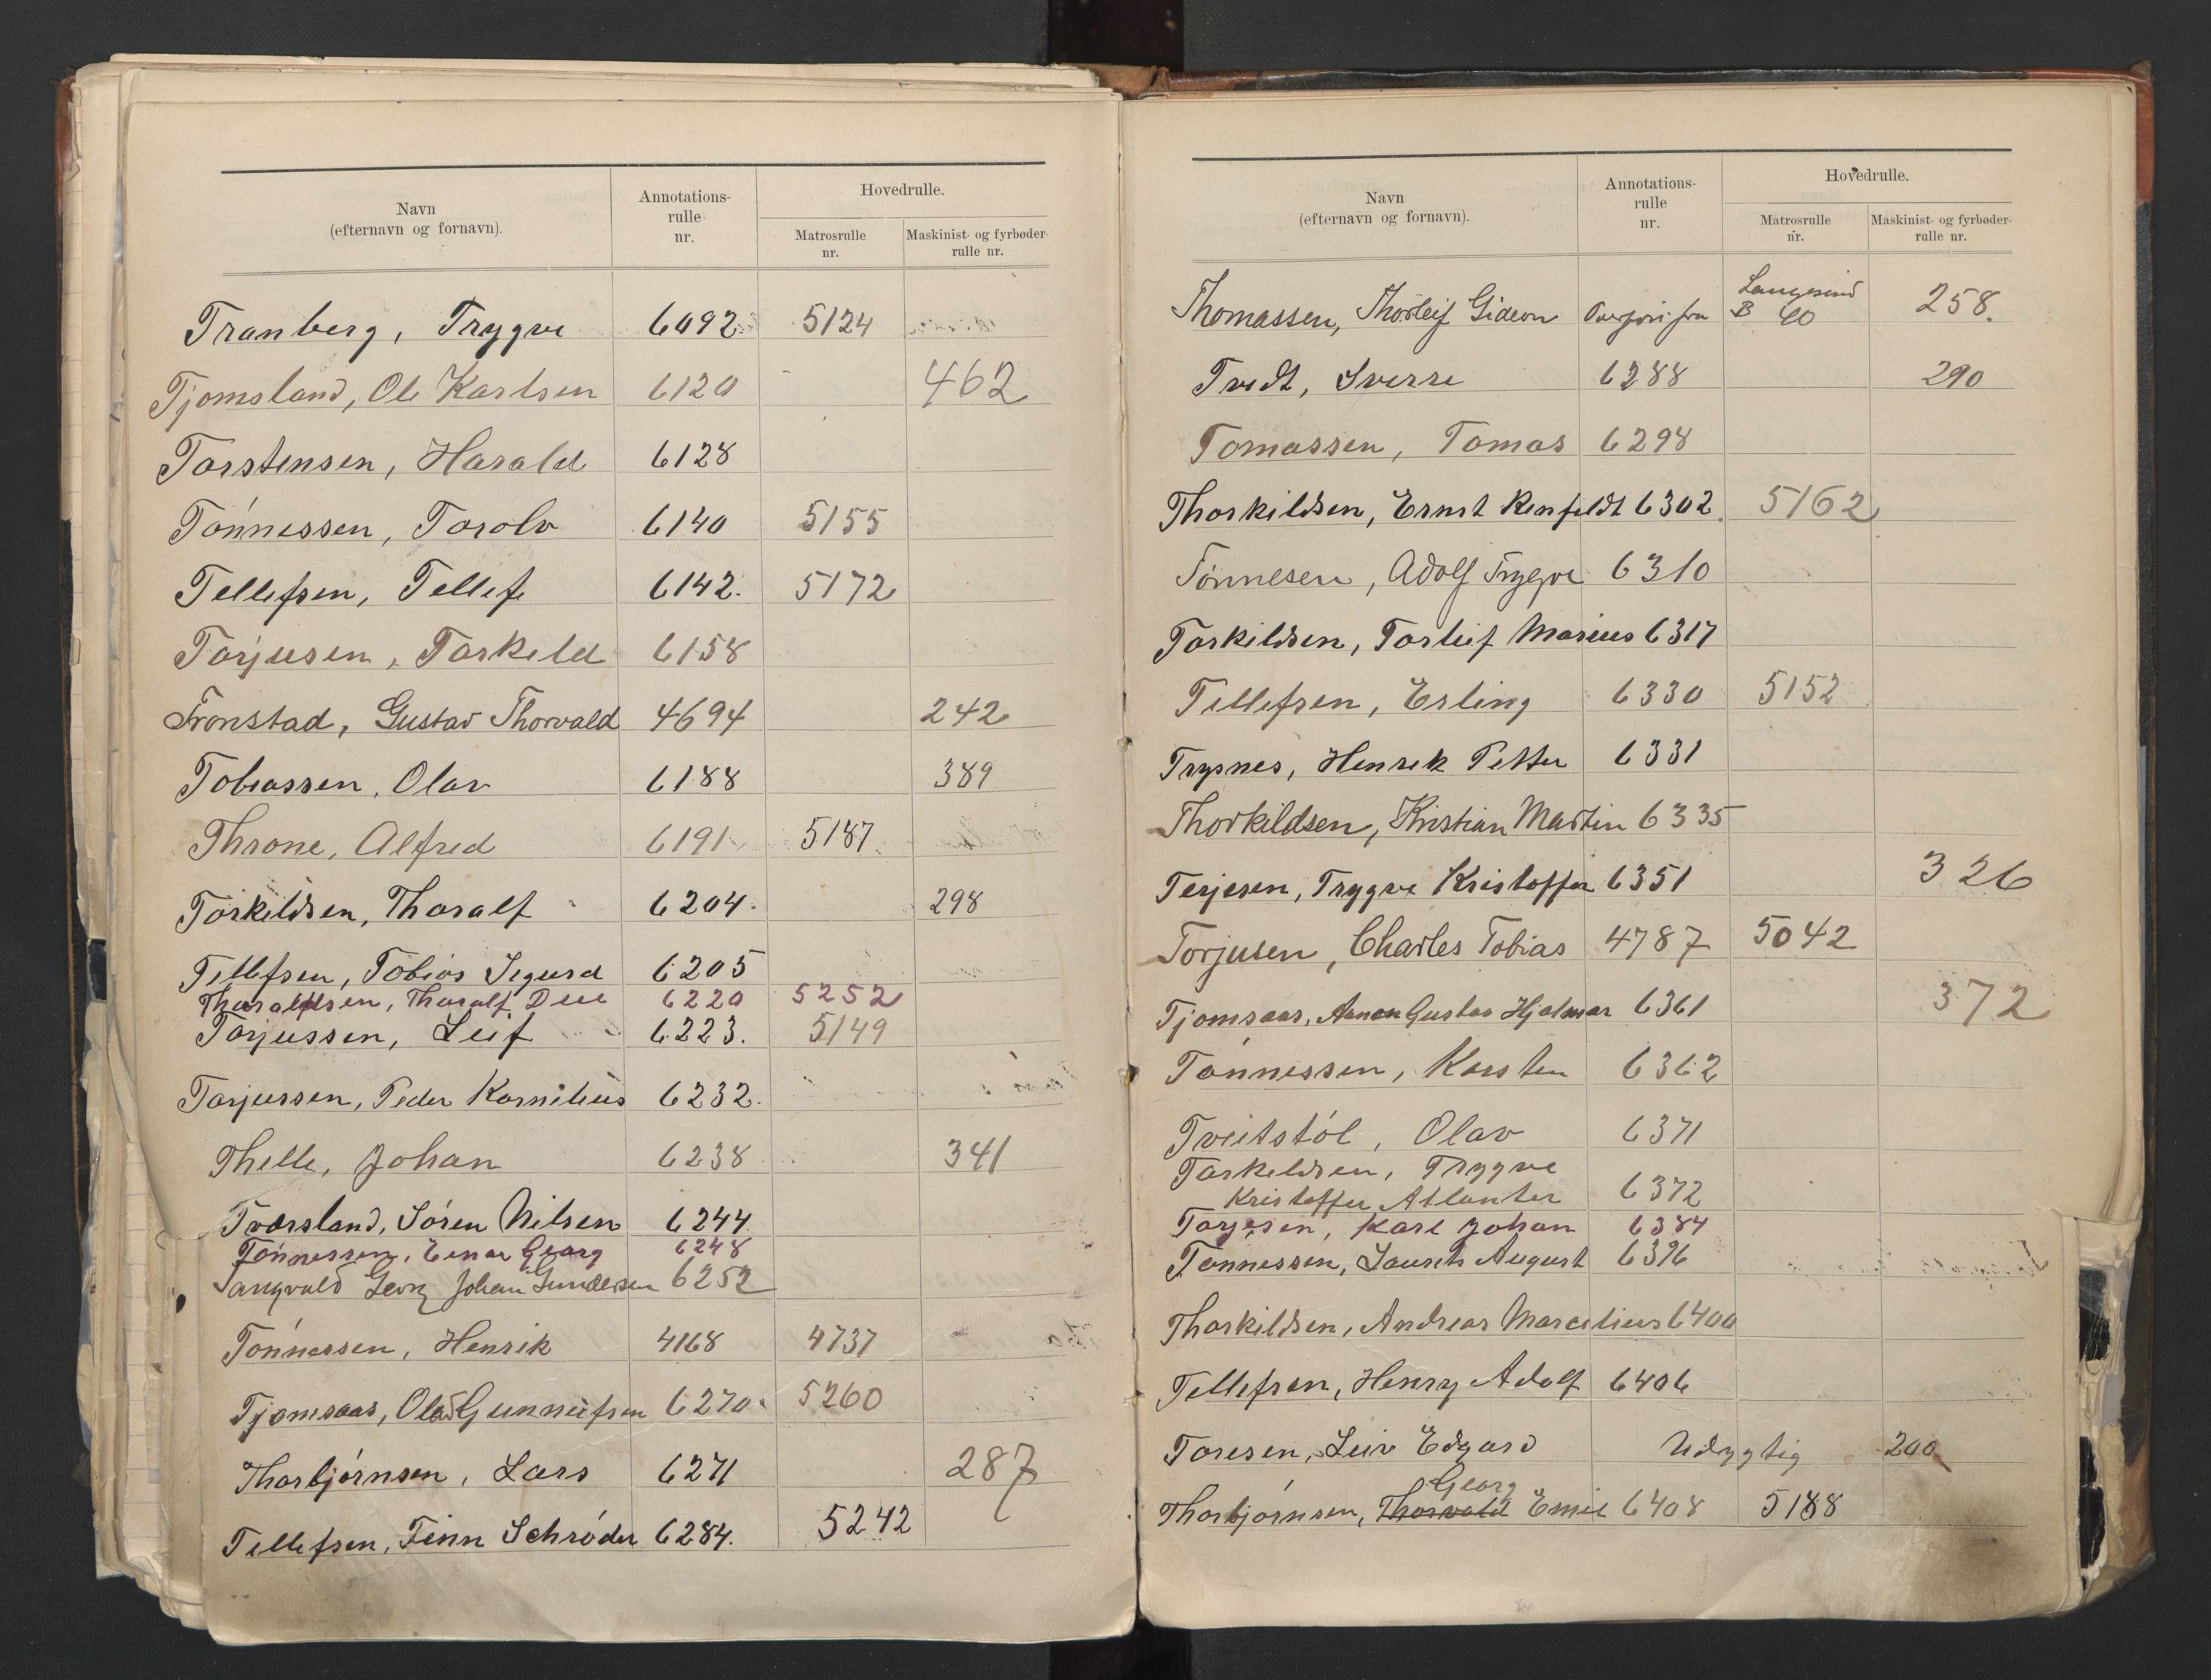 Navn
(efternavn og fornavn).
Annotations-
rulle
nr.
Hovedrulle.
Matrosrulle
nr.
Maskinist- og fyrbøder-
rulle nr.
Tranberg, Trygve 6092 5124
Tjomsland, Ole Karlsen 6120 462
Torstensen, Harald 6128
Tönnessen, Torolv 6140 5155
Tellefsen, Tellef 6142. 5172
Torjusen, Torkild 6158
Tronstad, Gustav Thorvald 4694 242
Tobiassen, Olav 6188 389
Throne, Alfred 6191 5187
Torkildsen, Thoralf 6204. 298
Tellefsen, Tobias Sigurd 6205
Tharaldsen, Tharalf Due 6220 5252
Torjussen, Leif 6223. 5149
Torjussen, Peder Kornilius 6232.
Thelle, Johan 6238 341
Tværsland, Sören Nilsen 6244
Tönnessen, Einar Georg 6248
Tangvald Georg Johan Gundersen 6252
Tönnessen, Henrik 4168 4737
Tjomsaas, Olav Gunnufsen 6270. 5260
Thorbjörnsen, Lars 6271 287
Tellefsen, Finn Schröder 6284. 5242
Navn
(efternavn og fornavn).
Annotations-
rulle
nr.
Hovedrulle.
Matrosrulle
nr.
Maskinist- og fyrbøder-
rulle nr.
Thomassen, Thorleif Gideon Overført fra Langesund B 60 258.
Tvedt, Sverre 6288 290
Tomassen, Tomas 6298
Thorkildsen, Ernst Renfeldt 6302. 5162
Tönnesen, Adolf Trygve 6310
Torkildsen, Torleif Marius 6317
Tellefsen, Erling 6330 5152
Trysnes, Henrik Petter 6331
Thorkildsen, Kristian Martin 6335
Terjesen, Trygve Kristoffer 6351 326
Torjusen, Charles Tobias 4787 5042
Tjomsaas, Anton Gustav Hjalmar 6361 372
Tönnessen, Karsten 6362
Tveitstöl, Olav 6371
Torkeldsen, Trygve
Kristoffer Atlanter 6372
Torjesen, Karl Johan 6384
Tönnessen, Laurits August 6396
Thorkildsen, Andreas Marcelius 6400
Tellefsen, Henry Adolf 6406
Toresen, Leiv Edgard Udygtig 200
Georg
Thorbjörnsen, Thorvald Emil 6408 5188